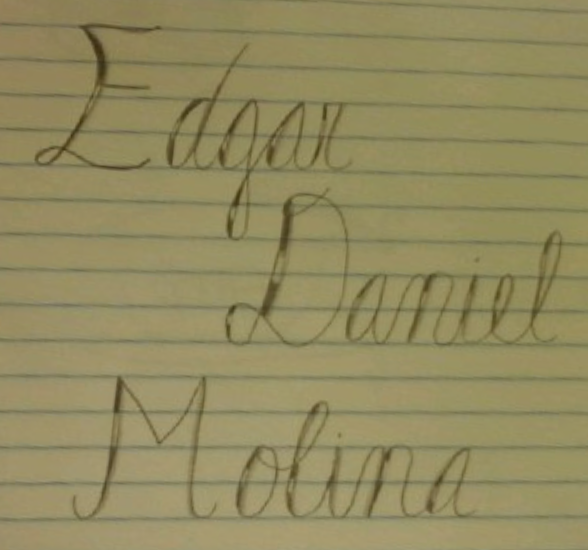 Edgar
Daniel
Molina